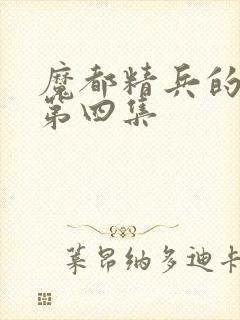 魔都精兵的
第四集
莱昂纳多迪卡